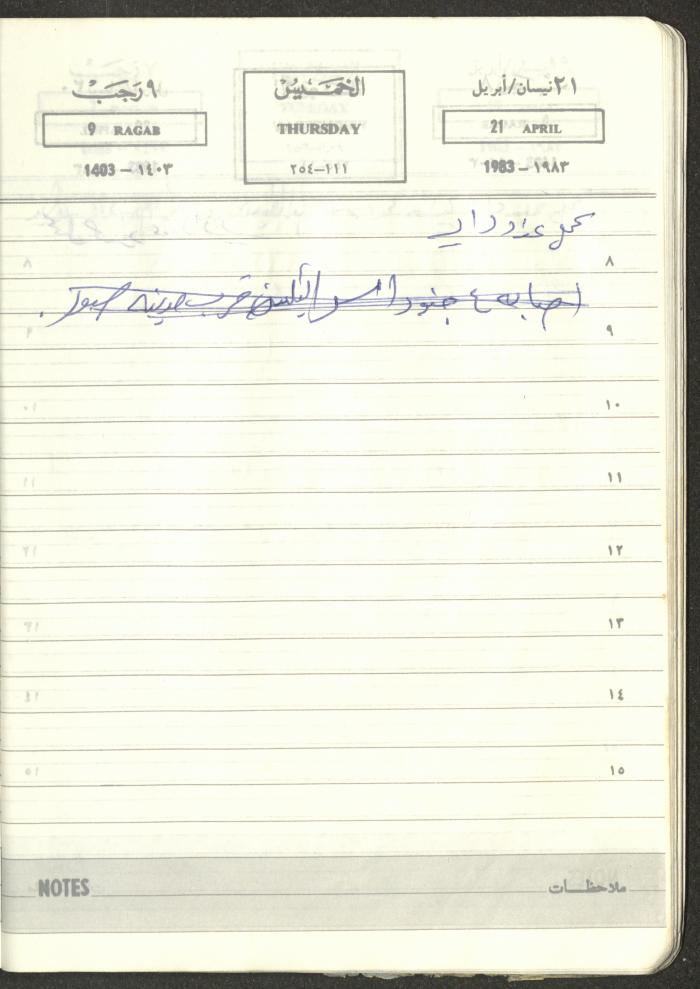 ٢١ نيسان/أبريل الخميس ٩ رجب
21 APRIL THURSDAY 9 RAGAB
1983 – ١٩٨٣ ٢٥٤–١١١ 1403 – ١٤٠٣
٨
اصابة ٤ جنود اسرائيليين قرب مدينة صور.
٩
١٠
١١
١٢
١٣
١٤
١٥
ملاحظات NOTES